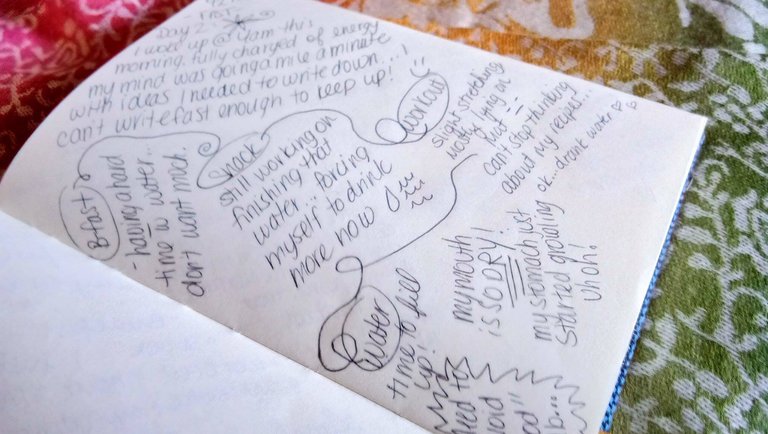 Day 2
I woke up @ 4am this
morning, fully charged of energy
my mind was going a mile a minute
with ideas I needed to write down...I
can't write fast enough to keep up!
Bfast
- having a hard
time w water..
don't want much.
snack
still working on
finishing that
water... forcing
myself to drink
more now
workout
slight stretching
mostly lying on
mat
can't stop thinking
about my recipes...
ok...drank water
water
time to fill
up!
my mouth
is so DRY!
my stomach just
started growling
uh oh!